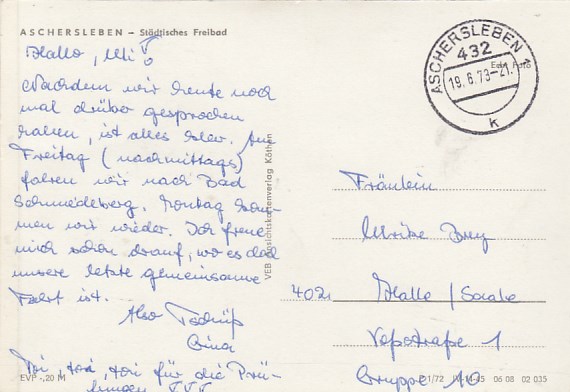 ASCHERSLEBEN – Städtisches Freibad
Hallo, Uli!
Nachdem wir heute noch
mal drüber gesprochen
haben, ist alles klar. Am
Freitag (nachmittags)
fahren wir nach Bad
Schmiedeberg. Sonntag kom-
men wir wieder. Ich freue
mich schon drauf, wo es doch
unsere letzte gemeinsame
Fahrt ist.
Also Tschüß
Gina
Toi, toi, toi für die Prü-
fungen!!!
EVP -,20 M
VEB Ansichtskartenverlag Köthen
ASCHERSLEBEN 1
432
19.6.73-21
k
Echt Foto
Fräulein
Ulrike
402 Halle / Saale
1
Gruppe
1/72 06 08 02 035